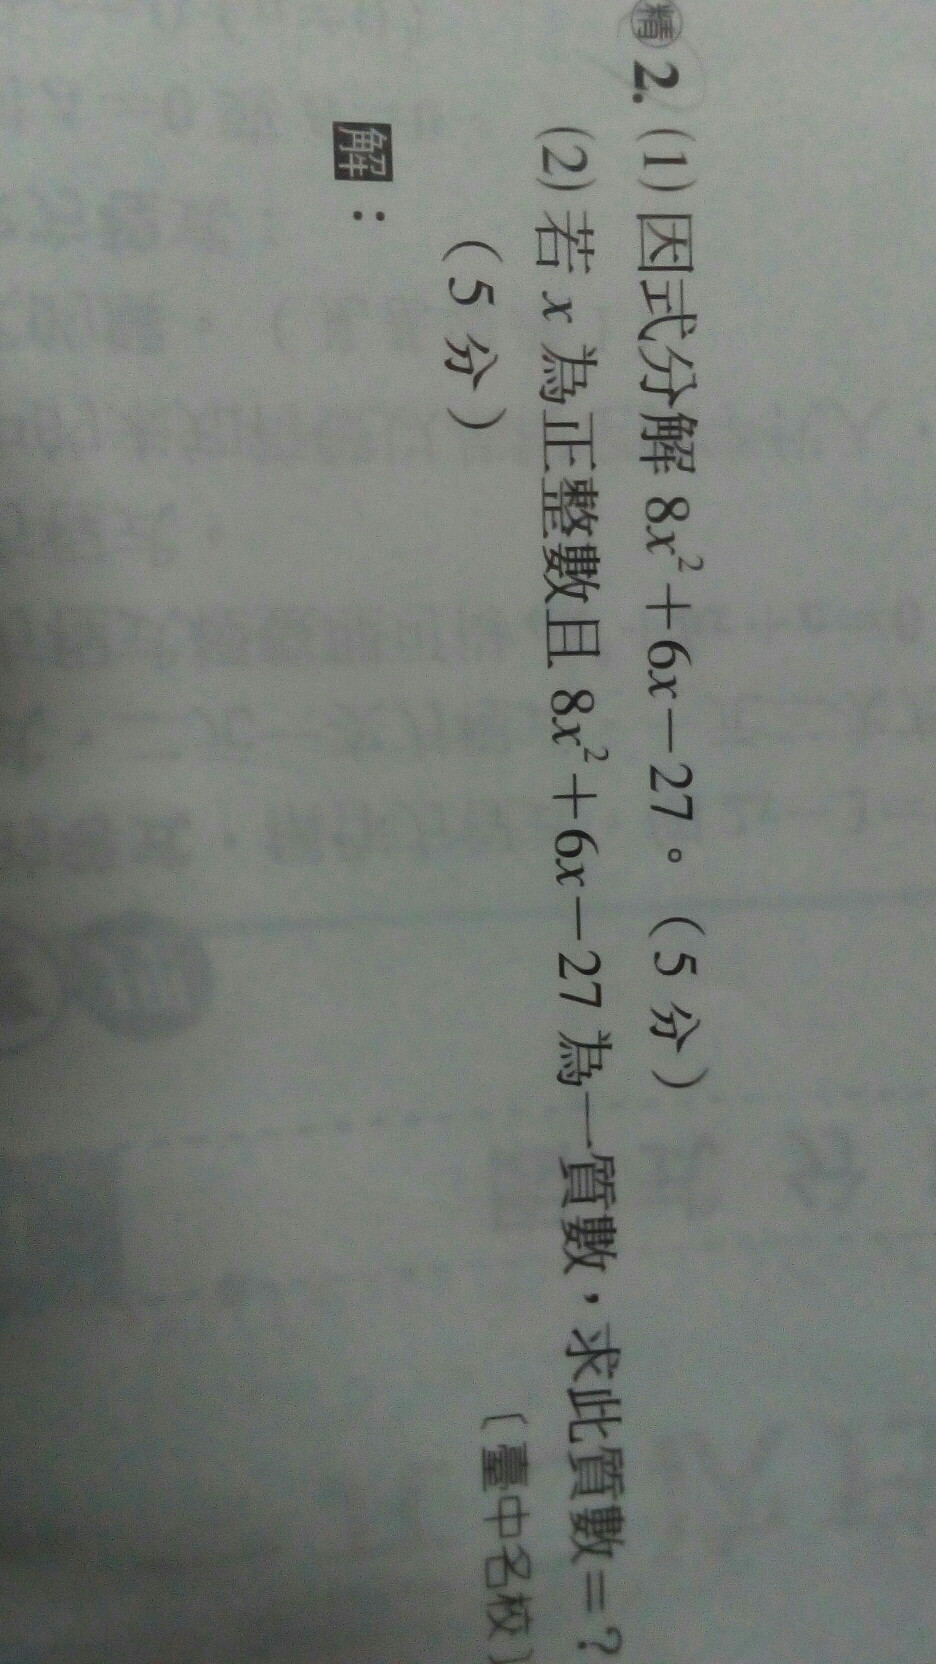 精 2. (1) 因式分解 8x²+6x-27。(5 分)
(2) 若 x 為正整數且 8x²+6x-27 為一質數，求此質數=？
(5 分)
〔臺中名校〕
解：